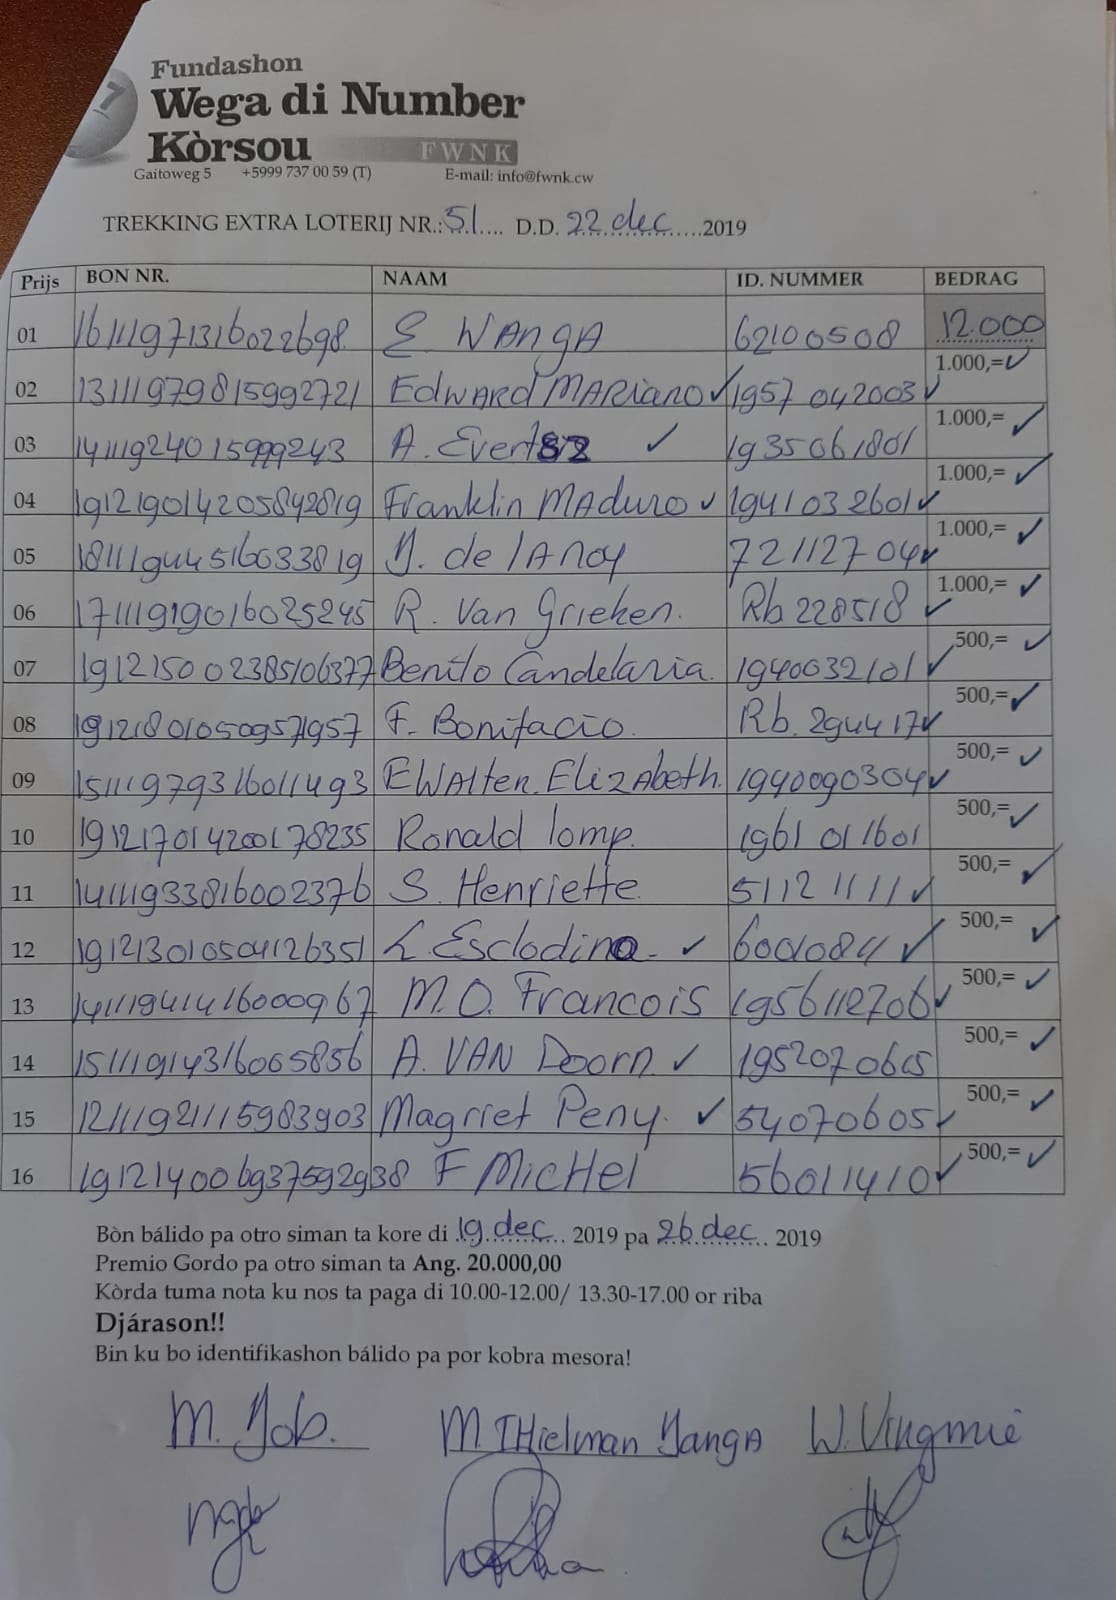 7
Fundashon
Wega di Number
Kòrsou FWNK
Gaitoweg 5 +5999 737 00 59 (T) E-mail: info@fwnk.cw
TREKKING EXTRA LOTERIJ NR.: 51 D.D. 22 dec 2019
Prijs BON NR. NAAM ID. NUMMER BEDRAG
01 16111971316022698 E WANgA 62100508 12.000
02 13111979815992721 EdwARd MARiano 1957 042003 1.000,=
03 14111924015999243 A. Evertsz 1935061801 1.000,=
04 191219014205842819 Franklin MAduro 1941032601 1.000,=
05 181119445160338 19 J. de lANoy 721127 04 1.000,=
06 17111919016025245 R. Van Grieken. Rb 228518 1.000,=
07 191215002385106377 Benito Candelaria. 1940032101 500,=
08 191218010509571957 F. Bonifacio. Rb. 294417 500,=
09 15111979316011493 E WAlten. ElizAbeth. 1940090304 500,=
10 1912170142001 78235 Ronald lomp. 1961 011601 500,=
11 141119338160023 76 S. Henriette 51121111 500,=
12 1912130105041 26351 L. Esclodina. 500,=
13 141119414160009 67 M.O. Francois 1956112706 500,=
14 151119143160 65856 A. VAN Doorn 500,=
15 12111921115983903 Magriet Peny. 54070605 500,=
16 1912140069375 92938 F MicHel 56011410 500,=
Bòn bálido pa otro siman ta kore di 19 dec 2019 pa 26 dec 2019
Premio Gordo pa otro siman ta Ang. 20.000,00
Kòrda tuma nota ku nos ta paga di 10.00-12.00/ 13.30-17.00 or riba
Djárason!!
Bin ku bo identifikashon bálido pa por kobra mesora!
M. Job. M. THielman JangA W. Vingmié